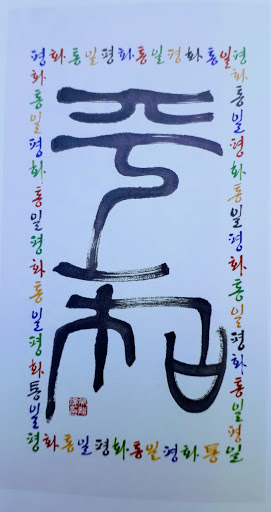 평화통일평화통일평화통일평
화통일평화통일평화통일평화통일
平和
화통일평화통일평화통일평화통일평
평화통일평화통일평화통일